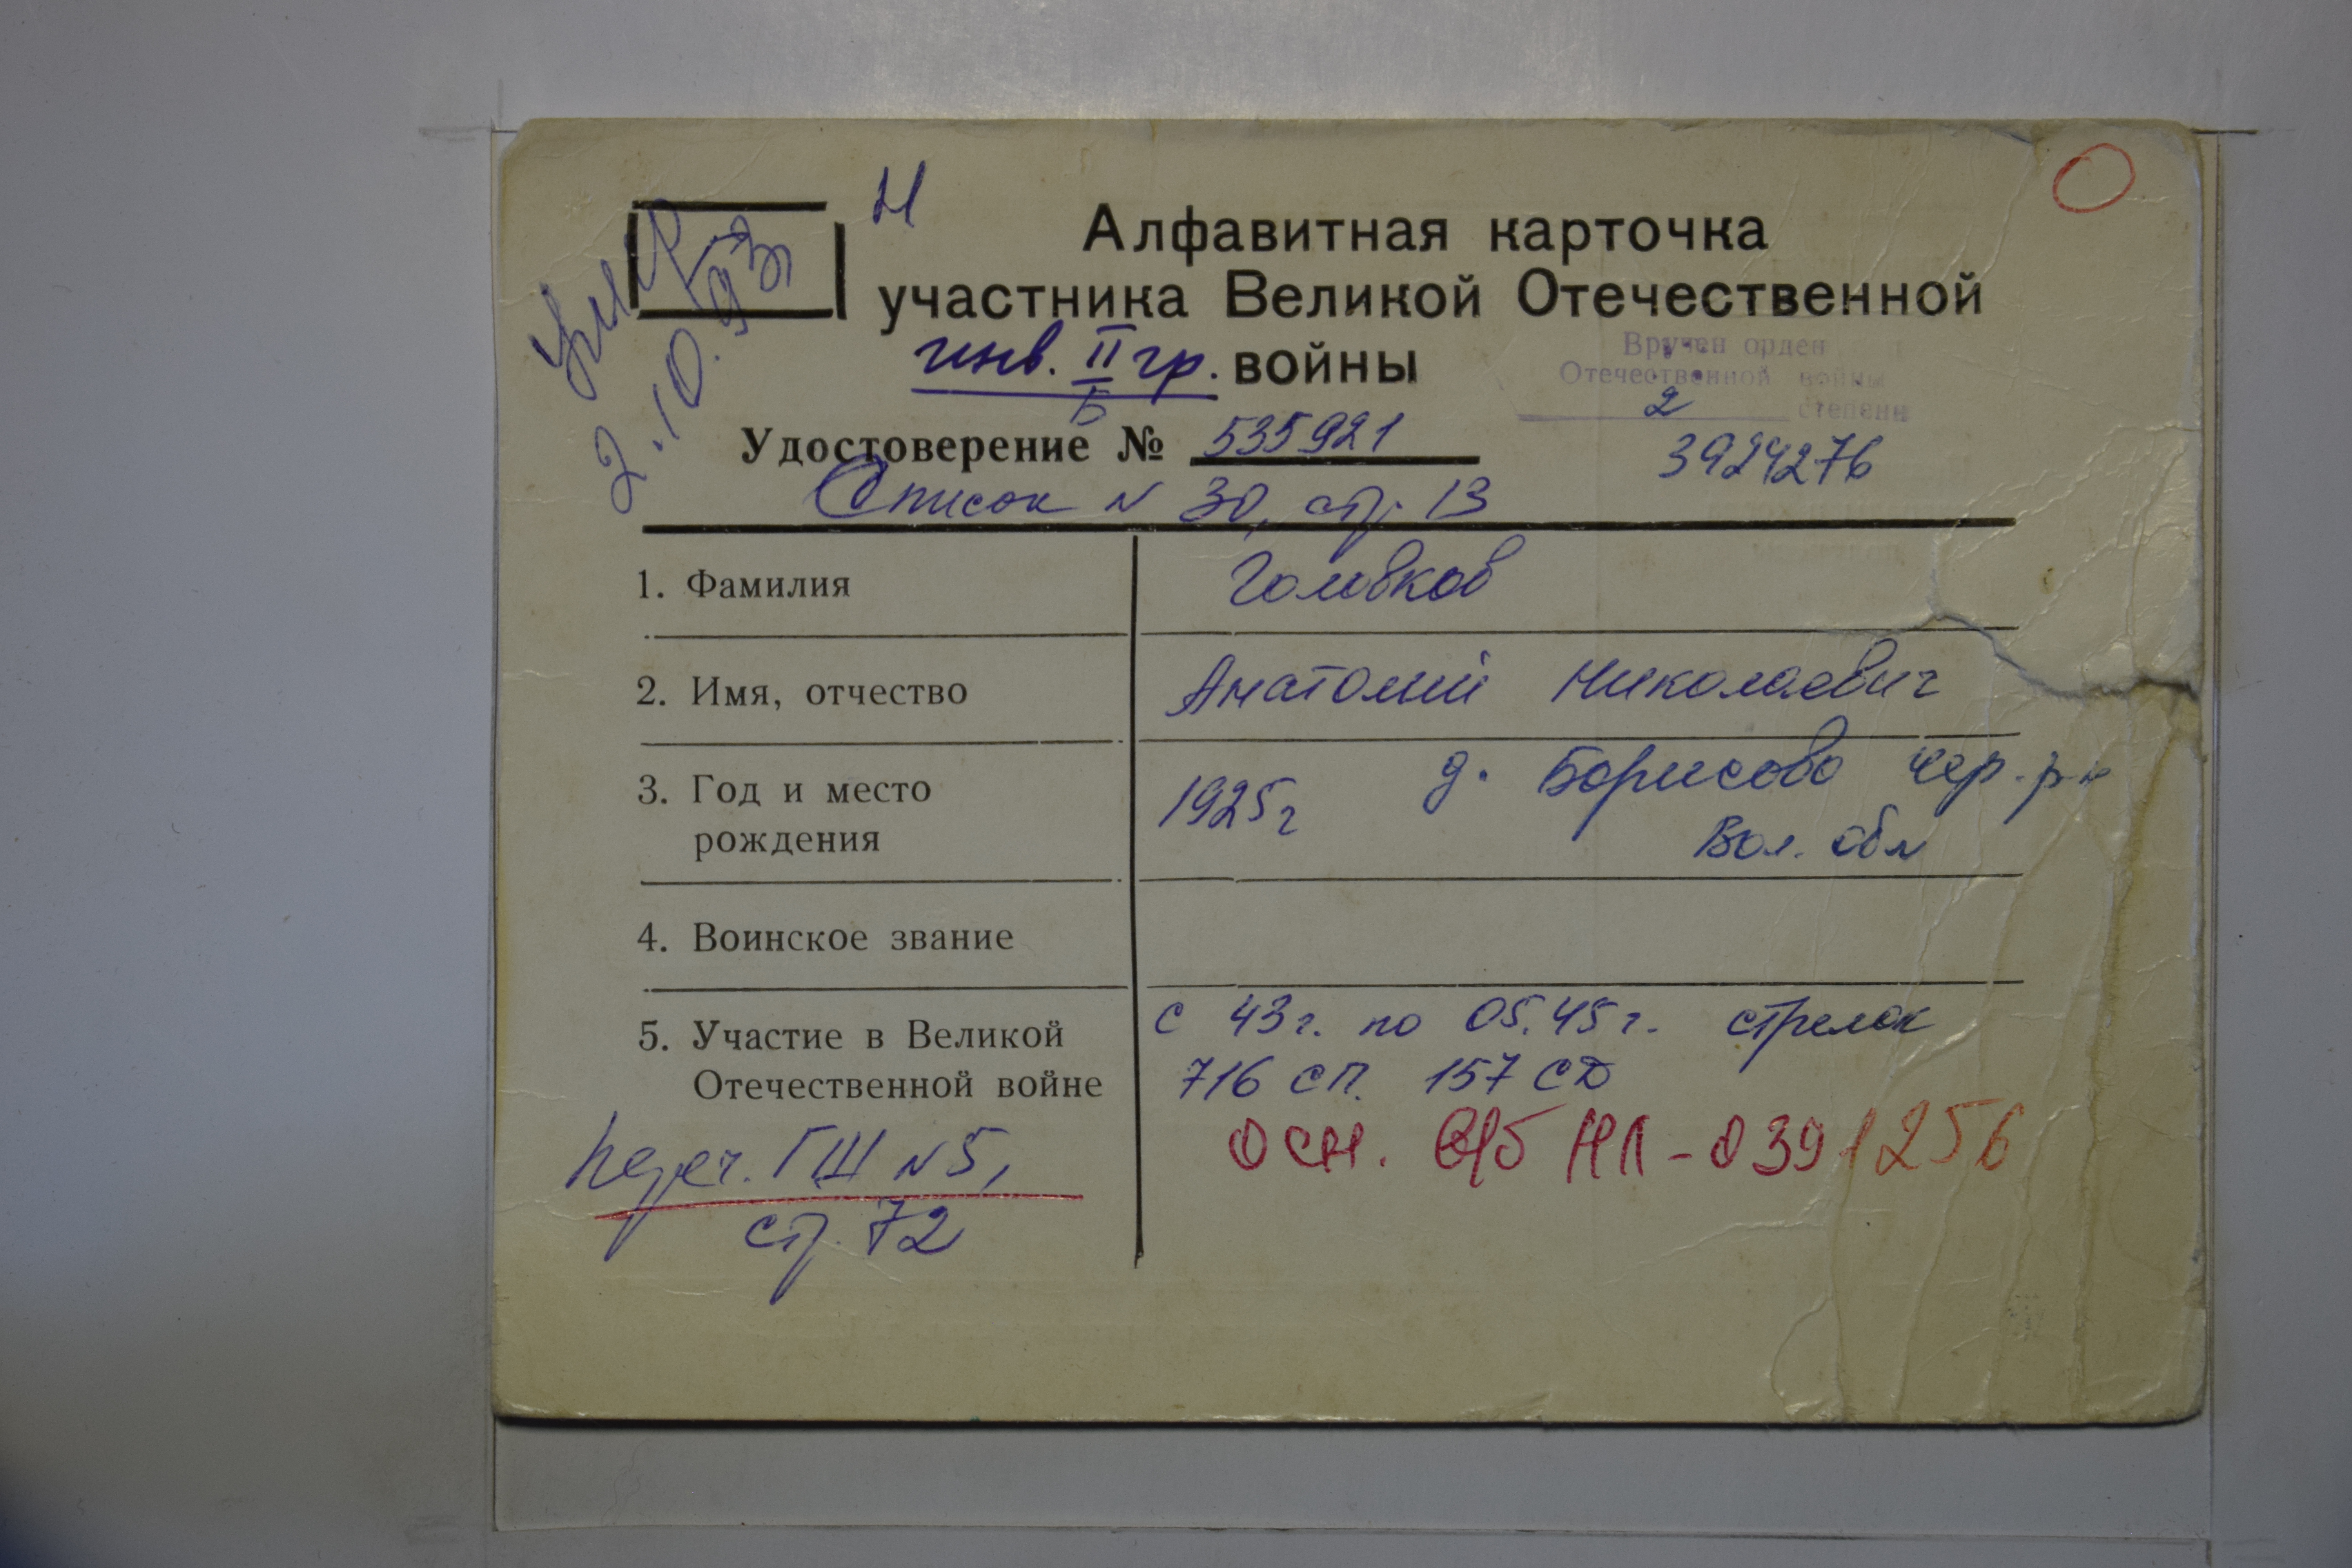 Н
Алфавитная карточка
участника Великой Отечественной
инв. II гр. войны
Б
Умер
2.10.93
Вручен орден
Отечественной войны
2 степени
3924276
Удостоверение № 535921
Список N 30, стр. 13
1. Фамилия Головков
2. Имя, отчество Анатолий Николаевич
3. Год и место рождения 1925г д. Борисово Чер. р-н
Вол. обл
4. Воинское звание
5. Участие в Великой Отечественной войне с 43г. по 05.45г. стрелок
716 сп. 157 СД
осн. НЛ-0391256
Переч. ГШ N5,
стр. 72